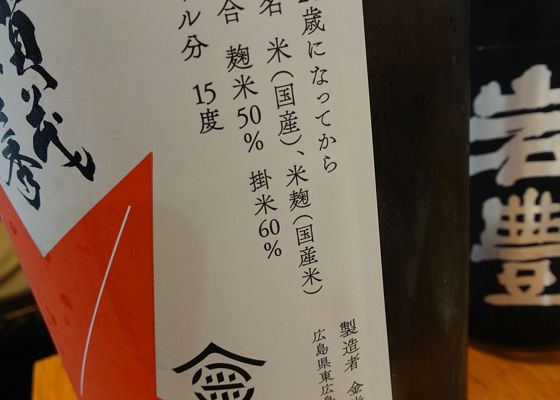 歳になってから
名 米(国産)、米麹(国産米)
合 麹米50% 掛米60%
ル分 15度
賀茂
金秀
製造者 金光
広島県東広島
岩豊